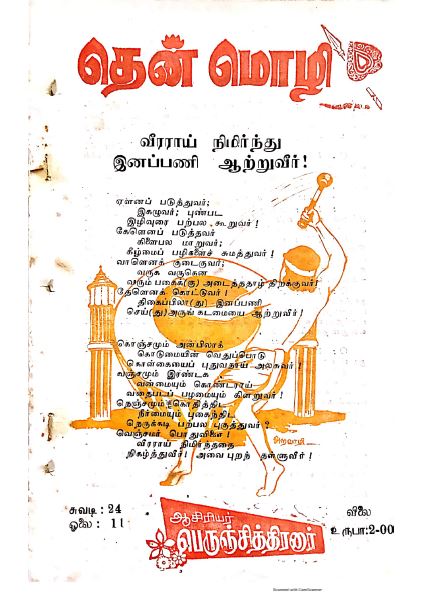 தென் மொழி
வீரராய் நிமிர்ந்து
இனப்பணி ஆற்றுவீர்!
ஏளனப் படுத்துவர்;
இகழுவர்; புண்பட
இழிவுரை பற்பல கூறுவர்!
கேளெனப் படுத்தவர்
கிளைபல மாறுவர்;
கீழ்மைப் பழிகளைச் சுமத்துவர்!
வாளெனக் குடைகுவர்;
வருக வருகென
வரும் பகைக்(கு) அடைத்ததாழ் திறக்குவர்!
தேளெனக் கொட்டுவர்!
திகைப்பிலா(து) இனப்பணி
செய்(து)அருங் கடமையை ஆற்றுவீர்!
கொஞ்சமும் அன்பிலாக்
கொடுமையின் வெதுப்பொடு
கொள்கையைப் புதுவதாய் அலசுவர்!
வஞ்சமும் இரண்டக
வன்மையும் கொண்டராய்
வதைபடப் பழமையும் கிளறுவர்!
நெஞ்சமும் கொதித்திட
நீர்மையும் புகைந்திட
நெருக்கடி பற்பல புகுத்துவர்?
வெஞ்சமர் பொதுவினை!
வீரராய் நிமிர்ந்ததை
நிகழ்த்துவீர்! அவை புறந் தள்ளுவீர்!
சுவடி : 24
ஓலை : 11
ஆசிரியர்
பெருஞ்சித்திரனார்
விலை
உருபா:2-00
Scanned with CamScanner